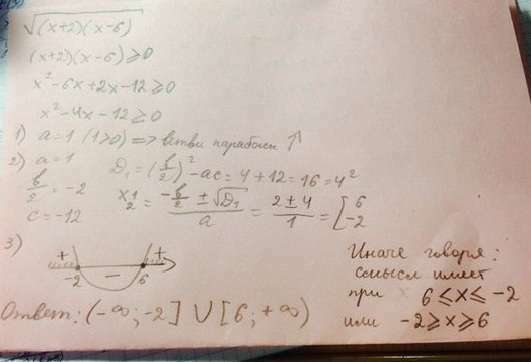 √(x+2)(x-6)
(x+2)(x-6)≥0
x²-6x+2x-12≥0
x²-4x-12≥0
1) a=1 (1>0) => ветви параболы ↑
2) a=1
b/2=-2
c=-12
D₁=(b/2)²-ac=4+12=16=4²
x₁,₂=(-b/2±√D₁)/a=(2±4)/1=[6
-2
3)
+ - +
-2 6
Ответ: (-∞;-2]∪[6;+∞)
Иначе говоря:
смысл имеет
при x 6≤x≤-2
или -2≥x≥6